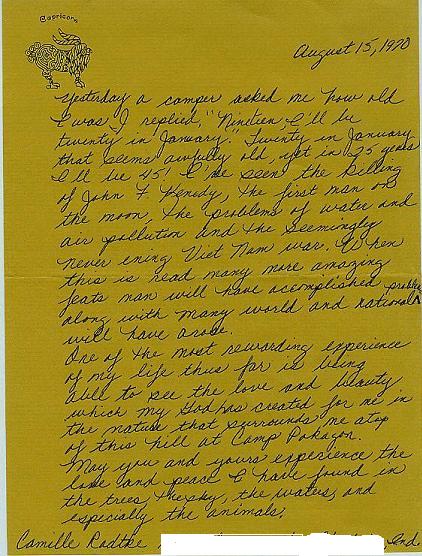 Capricorn
August 15, 1970
Yesterday a camper asked me how old
I was I replied, "Nineteen, I'll be
twenty in January." Twenty in January
that seems awfully old, yet in 25 years
I'll be 45! I've seen the killing
of John F. Kenedy, the first man on
the moon, the problems of water and
air pollution and the seemingly
never ening Viet Nam war. When
this is read many more amazing
feats man will have accomplished
along with many world and national problems
will have arose.
One of the most rewarding experience
of my life thus far is being
able to see the love and beauty
which my God has created for me in
the nature that surrounds me atop
of this hill at Camp Pokagon.
May you and yours experience the
love and peace I have found in
the trees, the sky, the waters, and
especially the animals.
Camille Radtke Ind.